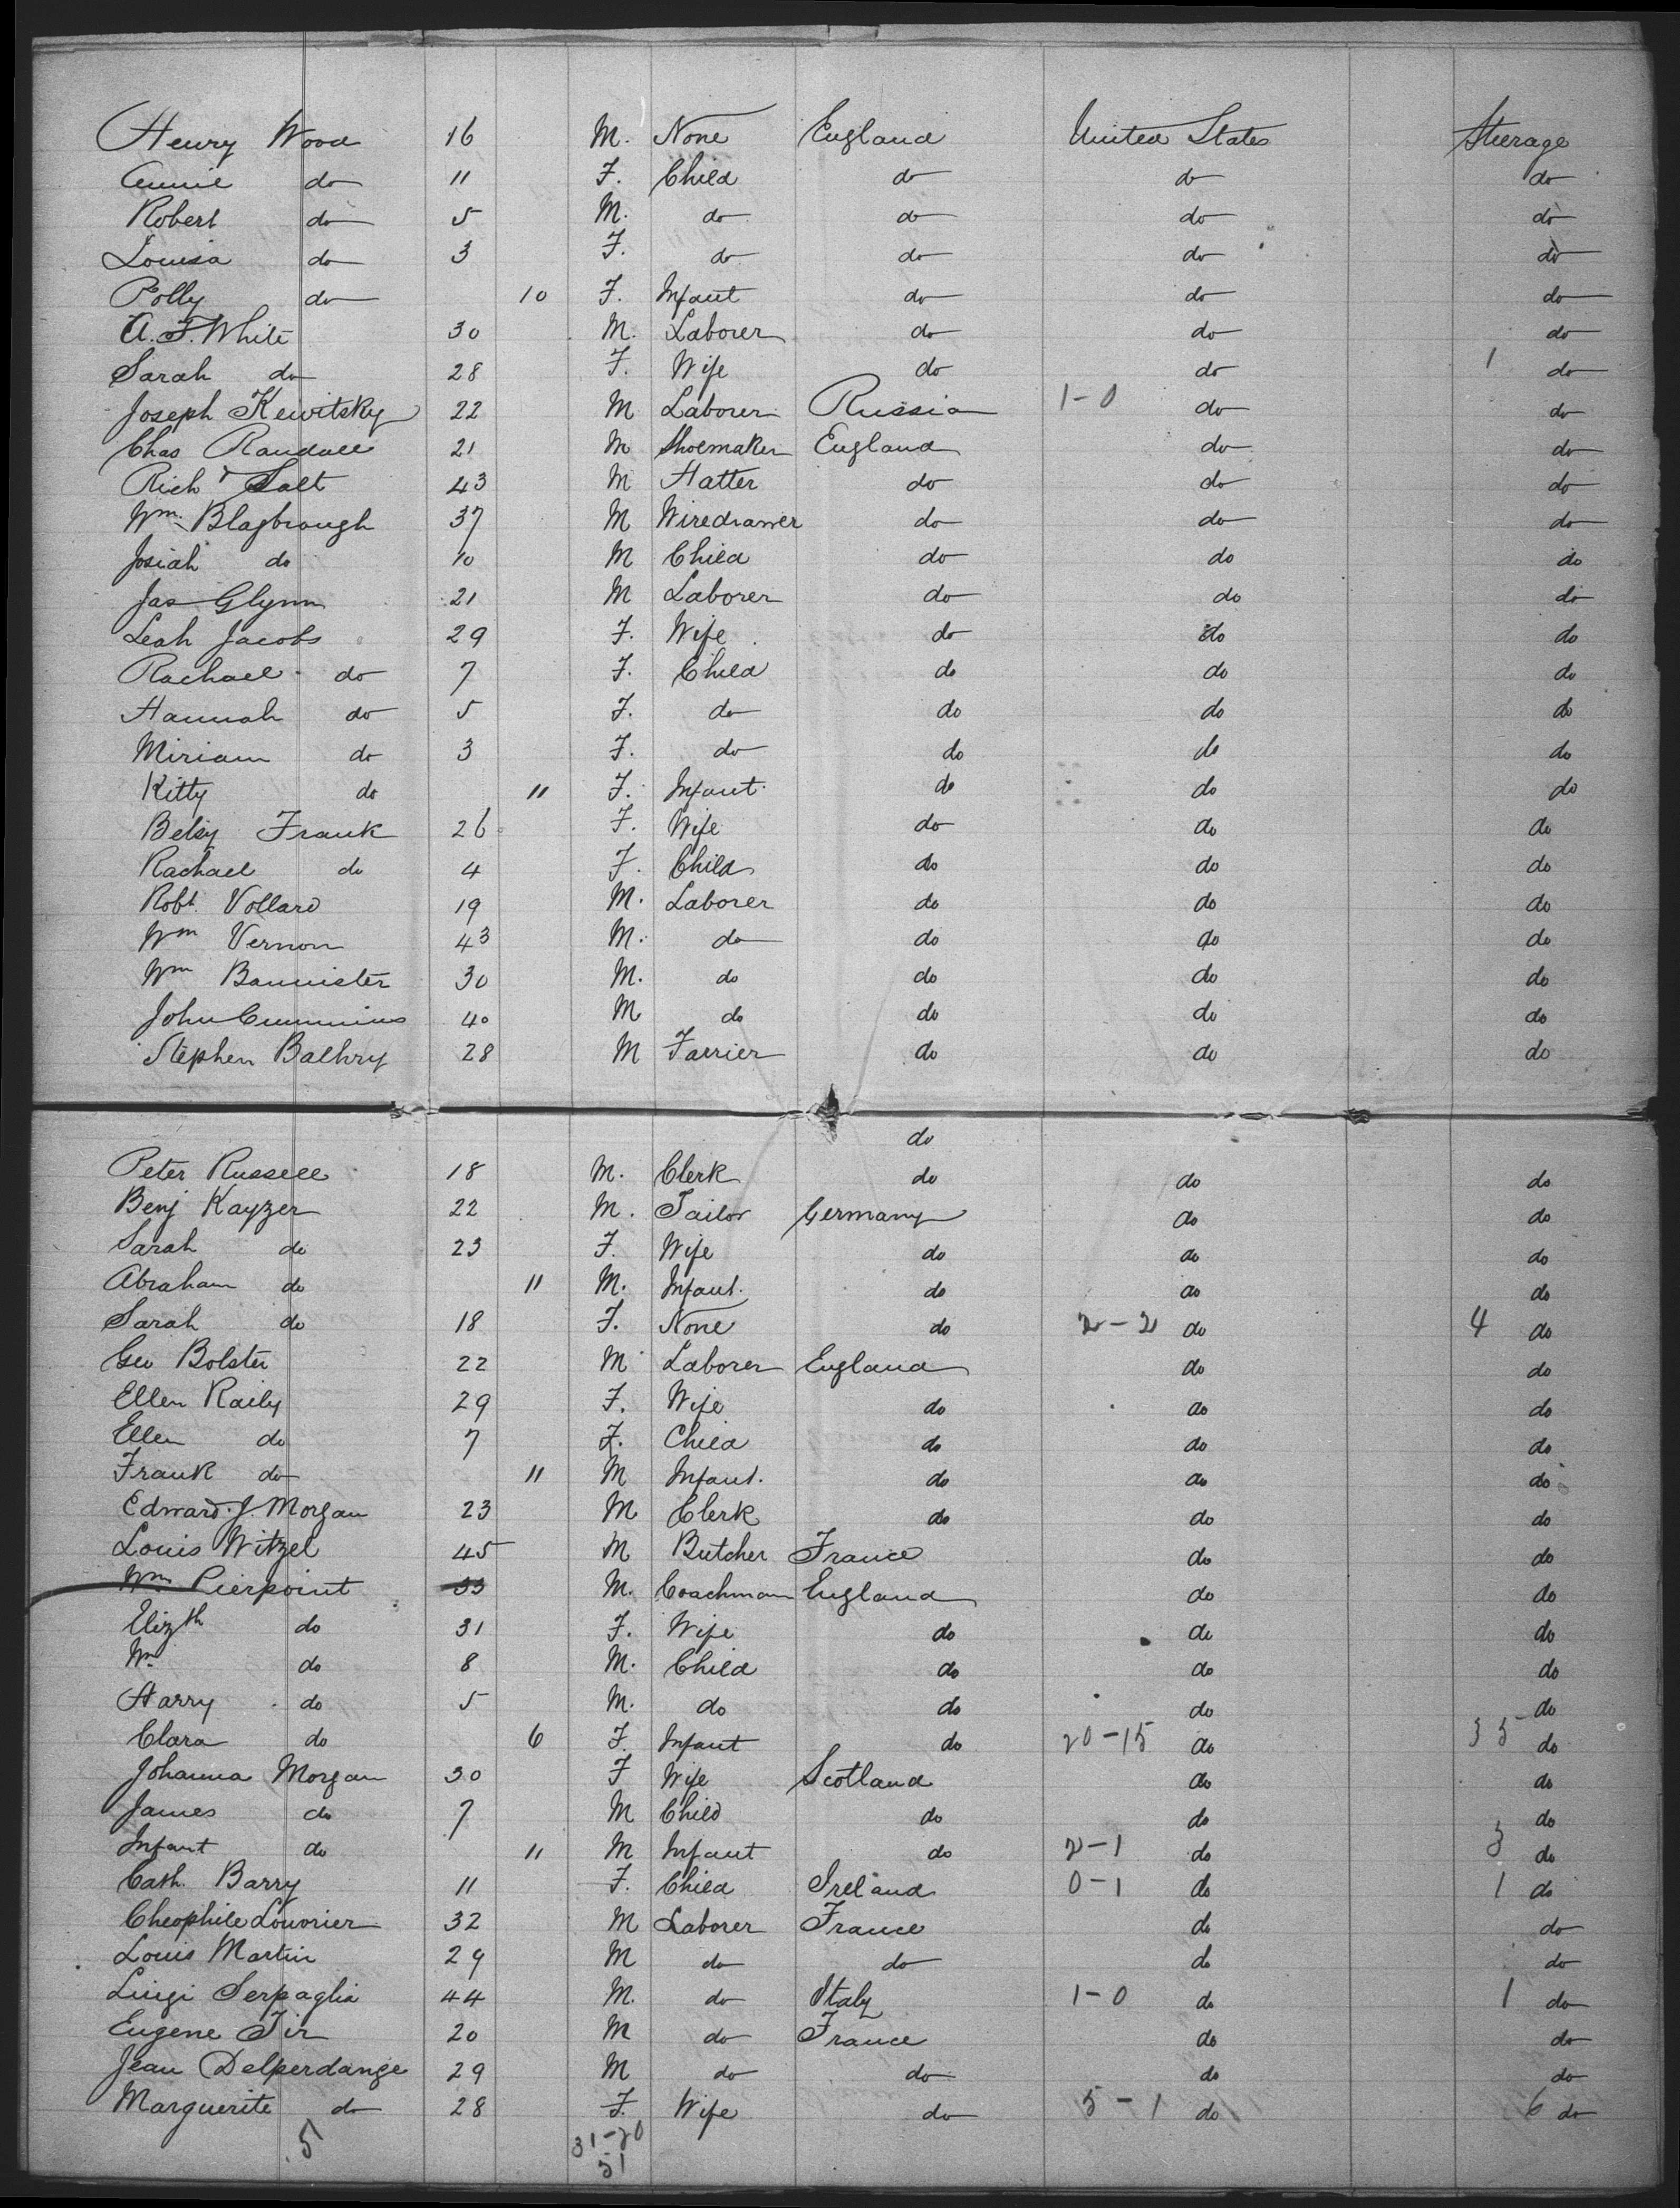 Henry Wood 16 M. None England United States Steerage
Annie do 11 F. Child do do do
Robert do 5 M. do do do do
Louisa do 3 F. do do do do
Polly do 10 F. Infant do do do
A. F. White 30 M. Laborer do do do
Sarah do 28 F. Wife do do 1 do
Joseph Kewitsky 22 M Laborer Russia 1-0 do do
Chas Randall 21 M Shoemaker England do do
Richd Salt 43 M Hatter do do do
Wm. Blagbrough 37 M Wiredrawer do do do
Josiah do 10 M Child do do do
Jas Glynn 21 M Laborer do do do
Leah Jacobs 29 F. Wife do do do
Rachael do 7 F. Child do do do
Hannah do 5 F. do do do do
Miriam do 3 F. do do do do
Kitty do 11 F. Infant do do do
Betsy Frank 26 F. Wife do do do
Rachael do 4 F. Child do do do
Robt. Vollard 19 M. Laborer do do do
Wm Vernon 43 M. do do do do
Wm Bannister 30 M. do do do do
John Cummins 40 M do do do do
Stephen Balhry 28 M Farrier do do do
do
Peter Russell 18 M. Clerk do do do
Benj Kayzer 22 M. Tailor Germany do do
Sarah do 23 F. Wife do do do
Abraham do 11 M. Infant. do do do
Sarah do 18 F. None do 2-2 do 4 do
Geo Bolster 22 M Laborer England do do
Ellen Raily 29 F. Wife do do do
Ellen do 7 F. Child do do do
Frank do 11 M Infant. do do do
Edward. J. Morgan 23 M Clerk do do do
Louis Witzel 45 M Butcher France do do
Wm Pierpoint 33 M. Coachman England do do
Elizth do 31 F. Wife do do do
Wm do 8 M. Child do do do
Harry do 5 M. do do do do
Clara do 6 F. Infant do 20-15 do 35 do
Johanna Morgan 30 F Wife Scotland do do
James do 7 M Child do do do
Infant do 11 M Infant do 2-1 do 3 do
Cath. Barry 11 F. Child Ireland 0-1 do 1 do
Cheophile Louvrier 32 M Laborer France do do
Louis Martin 29 M do do do do
Luigi Serpaglia 44 M. do Italy 1-0 do 1 do
Eugene Tir 20 M do France do do
Jean Delperdange 29 M do do do do
Marguerite do 28 F. Wife do 5-1 do 6 do
5 31-20
51